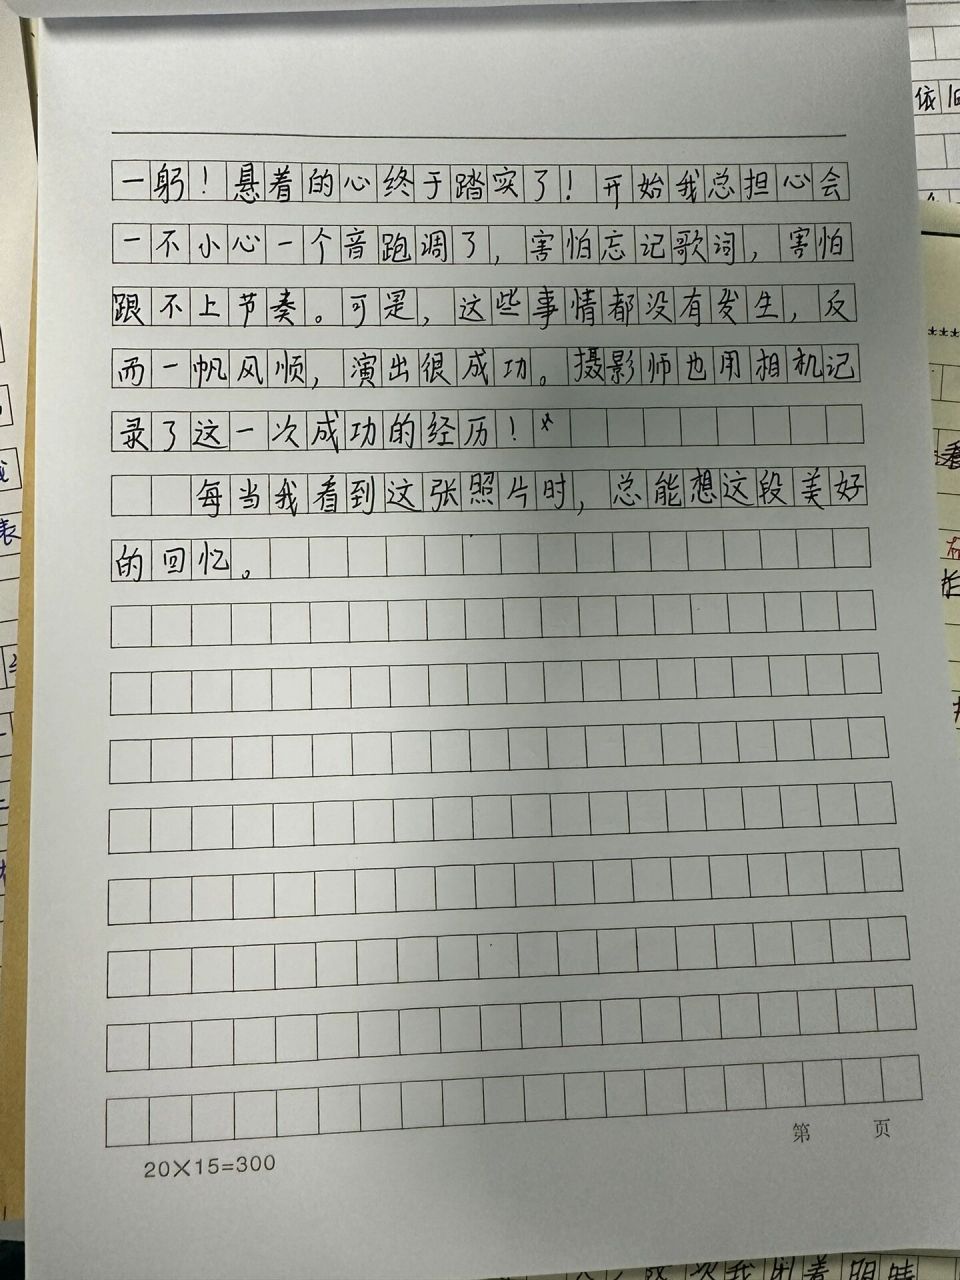 一躬！悬着的心终于踏实了！开始我总担心会
一不小心一个音跑调了，害怕忘记歌词，害怕
跟不上节奏。可是，这些事情都没有发生，反
而一帆风顺，演出很成功。摄影师也用相机记
录了这一次成功的经历！
每当我看到这张照片时，总能想这段美好
的回忆。
20×15=300
第 页
依旧